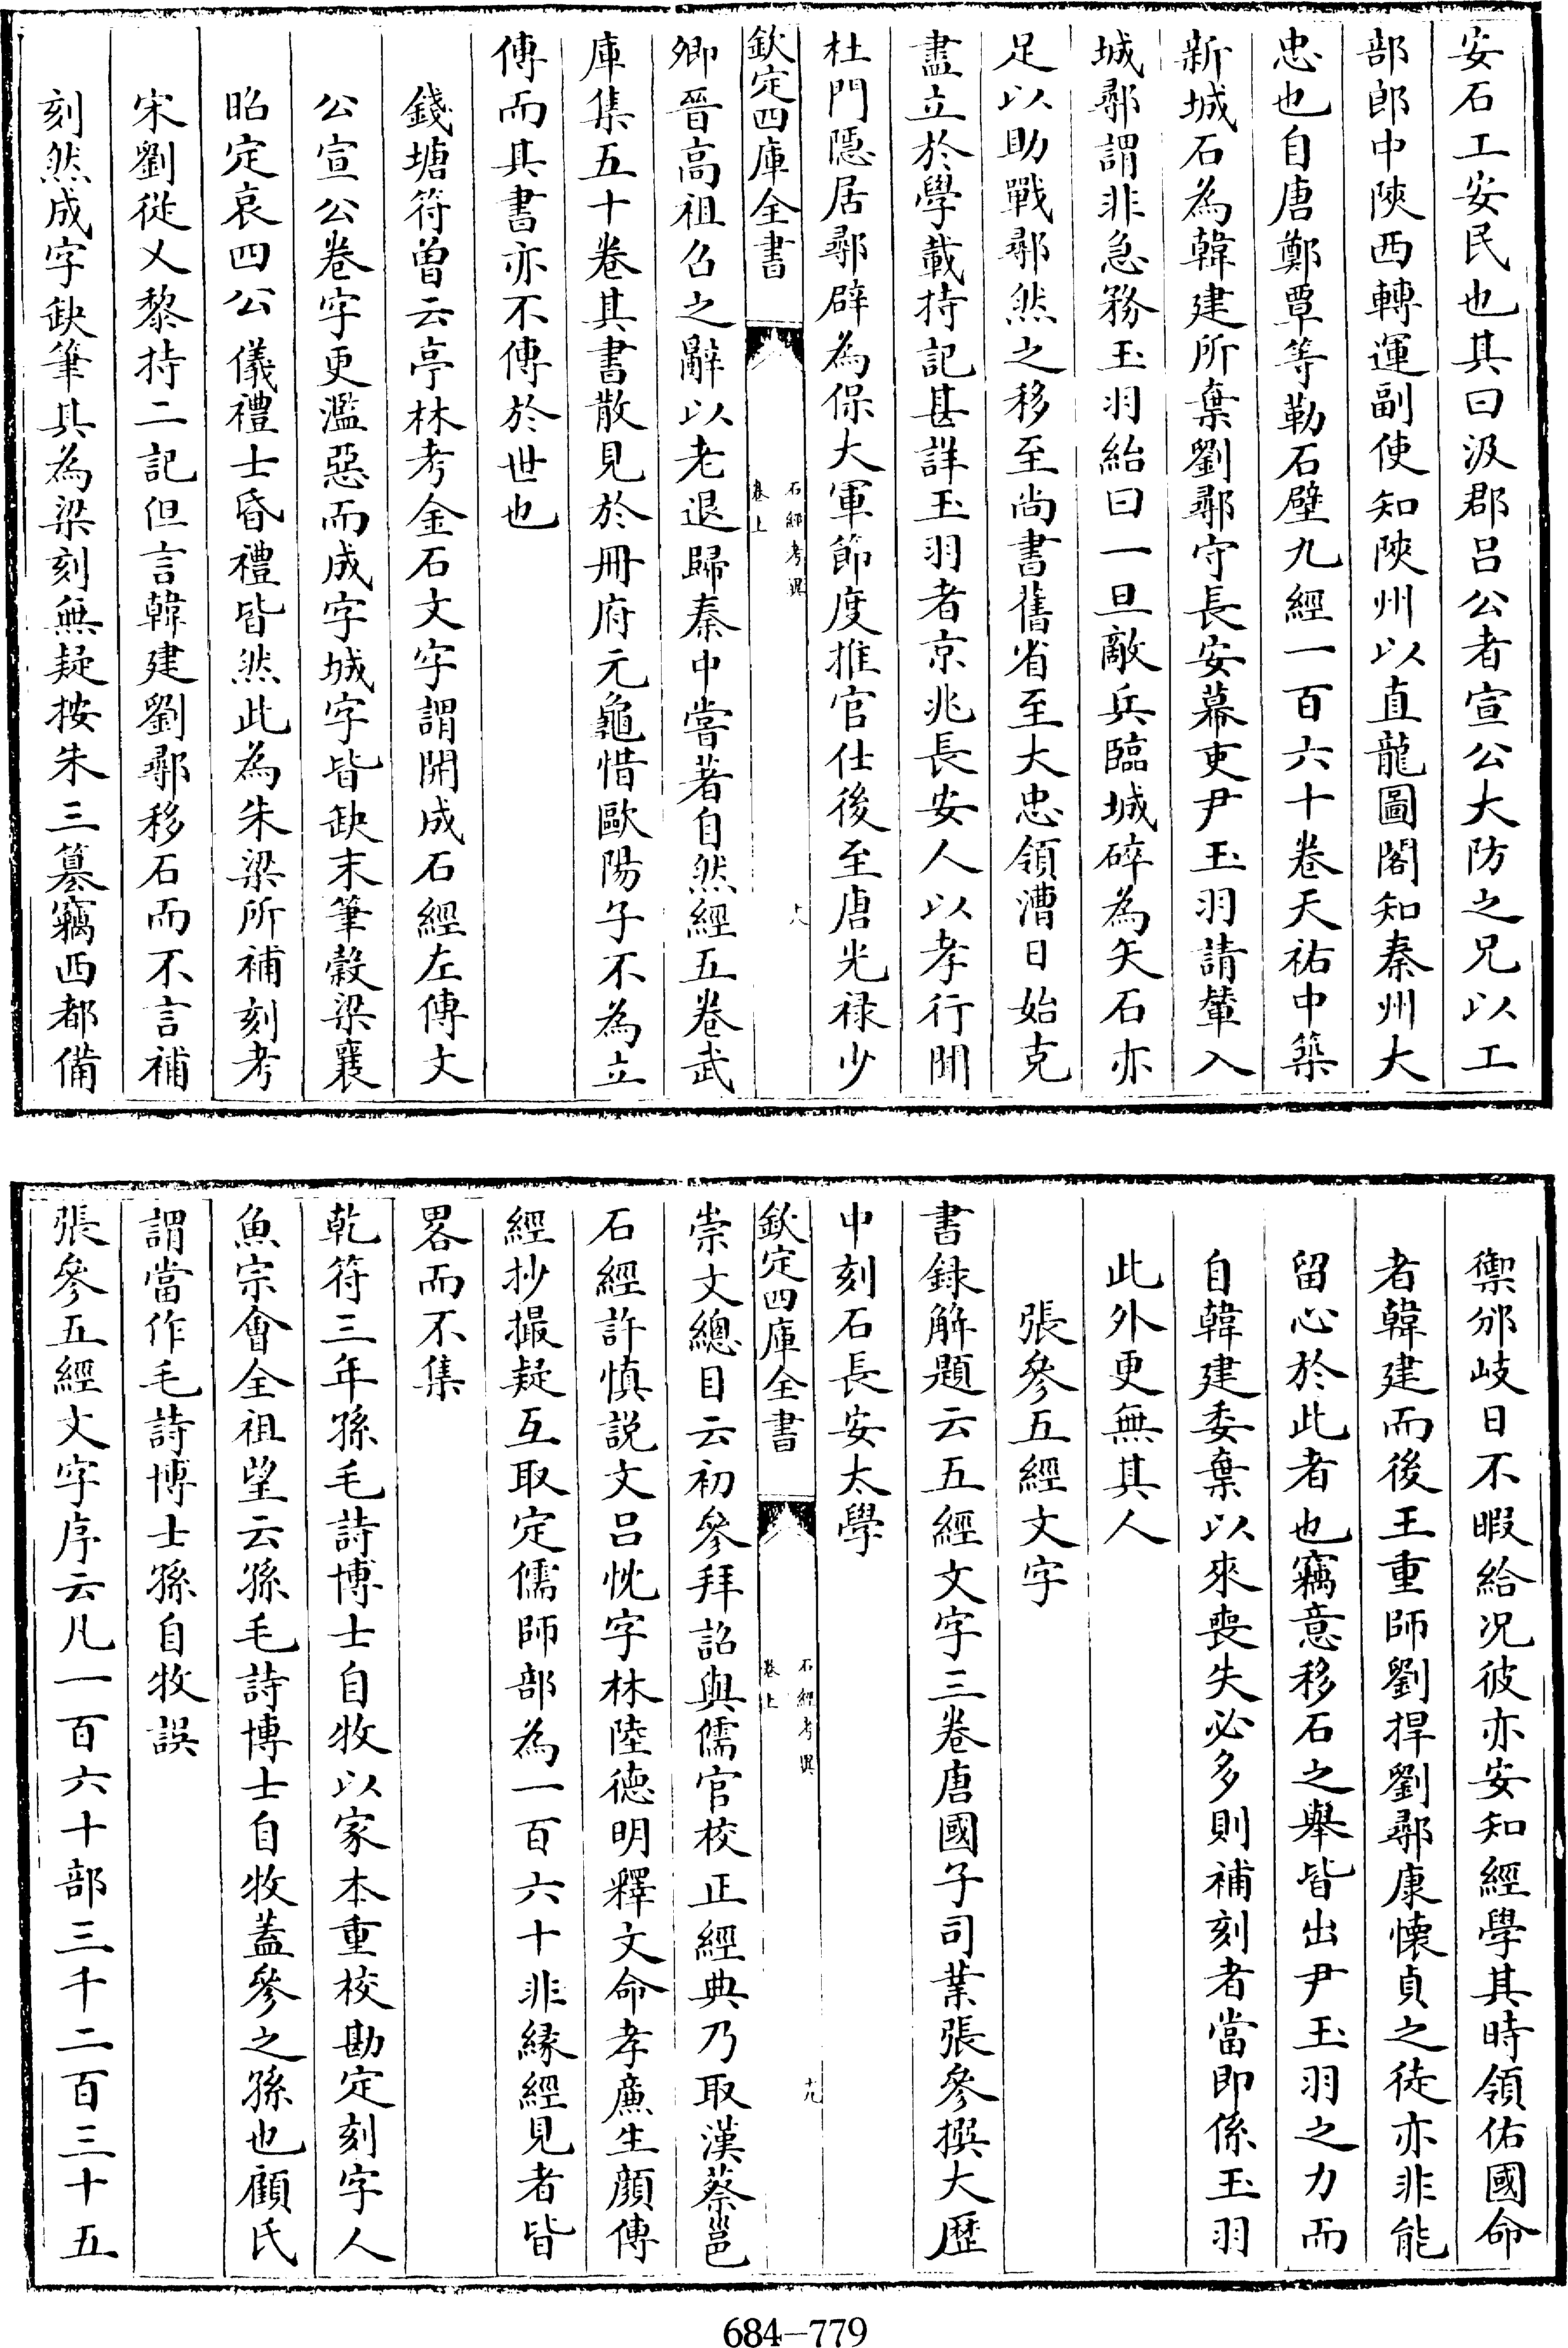 安石工安民也其曰汲郡吕公者宣公大防之兄以工
部郎中陜西轉運副使知陜州以直龍圖閣知秦州大
忠也自唐鄭覃等勒石壁九經一百六十卷天祐中築
新城石為韓建所棄劉鄩守長安幕吏尹玉羽請輦入
城鄩謂非急務玉羽紿曰一旦敵兵臨城碎為矢石亦
足以助戰鄩然之移至尚書舊省至大忠領漕日始克
盡立於學載持記甚詳玉羽者京兆長安人以孝行聞
杜門隠居鄩辟為保大軍節度推官仕後至唐光禄少
欽定四庫全書
石經考異
卷上
十八
卿晉高祖召之辭以老退歸秦中嘗著自然經五卷武
庫集五十卷其書散見於冊府元龜惜歐陽子不為立
傳而其書亦不傳於世也
錢塘符曽云亭林考金石文字謂開成石經左傳文
公宣公卷字更濫惡而成字城字皆缺末筆穀梁襄
昭定哀四公儀禮士昏禮皆然此為朱梁所補刻考
宋劉從乂黎持二記但言韓建劉鄩移石而不言補
刻然成字缺筆其為梁刻無疑按朱三簒竊西都備
禦邠岐日不暇給况彼亦安知經學其時領佑國命
者韓建而後王重師劉捍劉鄩康懐貞之徒亦非能
留心於此者也竊意移石之舉皆出尹玉羽之力而
自韓建委棄以來喪失必多則補刻者當即係玉羽
此外更無其人
張參五經文字
書録解題云五經文字三卷唐國子司業張參撰大歴
中刻石長安太學
欽定四庫全書
石經考異
卷上
十九
崇文總目云初參拜詔與儒官校正經典乃取漢蔡邕
石經許慎説文吕忱字林陸德明釋文命孝亷生顔傳
經抄撮疑互取定儒師部為一百六十非縁經見者皆
畧而不集
乾符三年孫毛詩博士自牧以家本重校勘定刻字人
魚宗會全祖望云孫毛詩博士自牧蓋參之孫也顧氏
謂當作毛詩博士孫自牧誤
張參五經文字序云凡一百六十部三千二百三十五
684-779